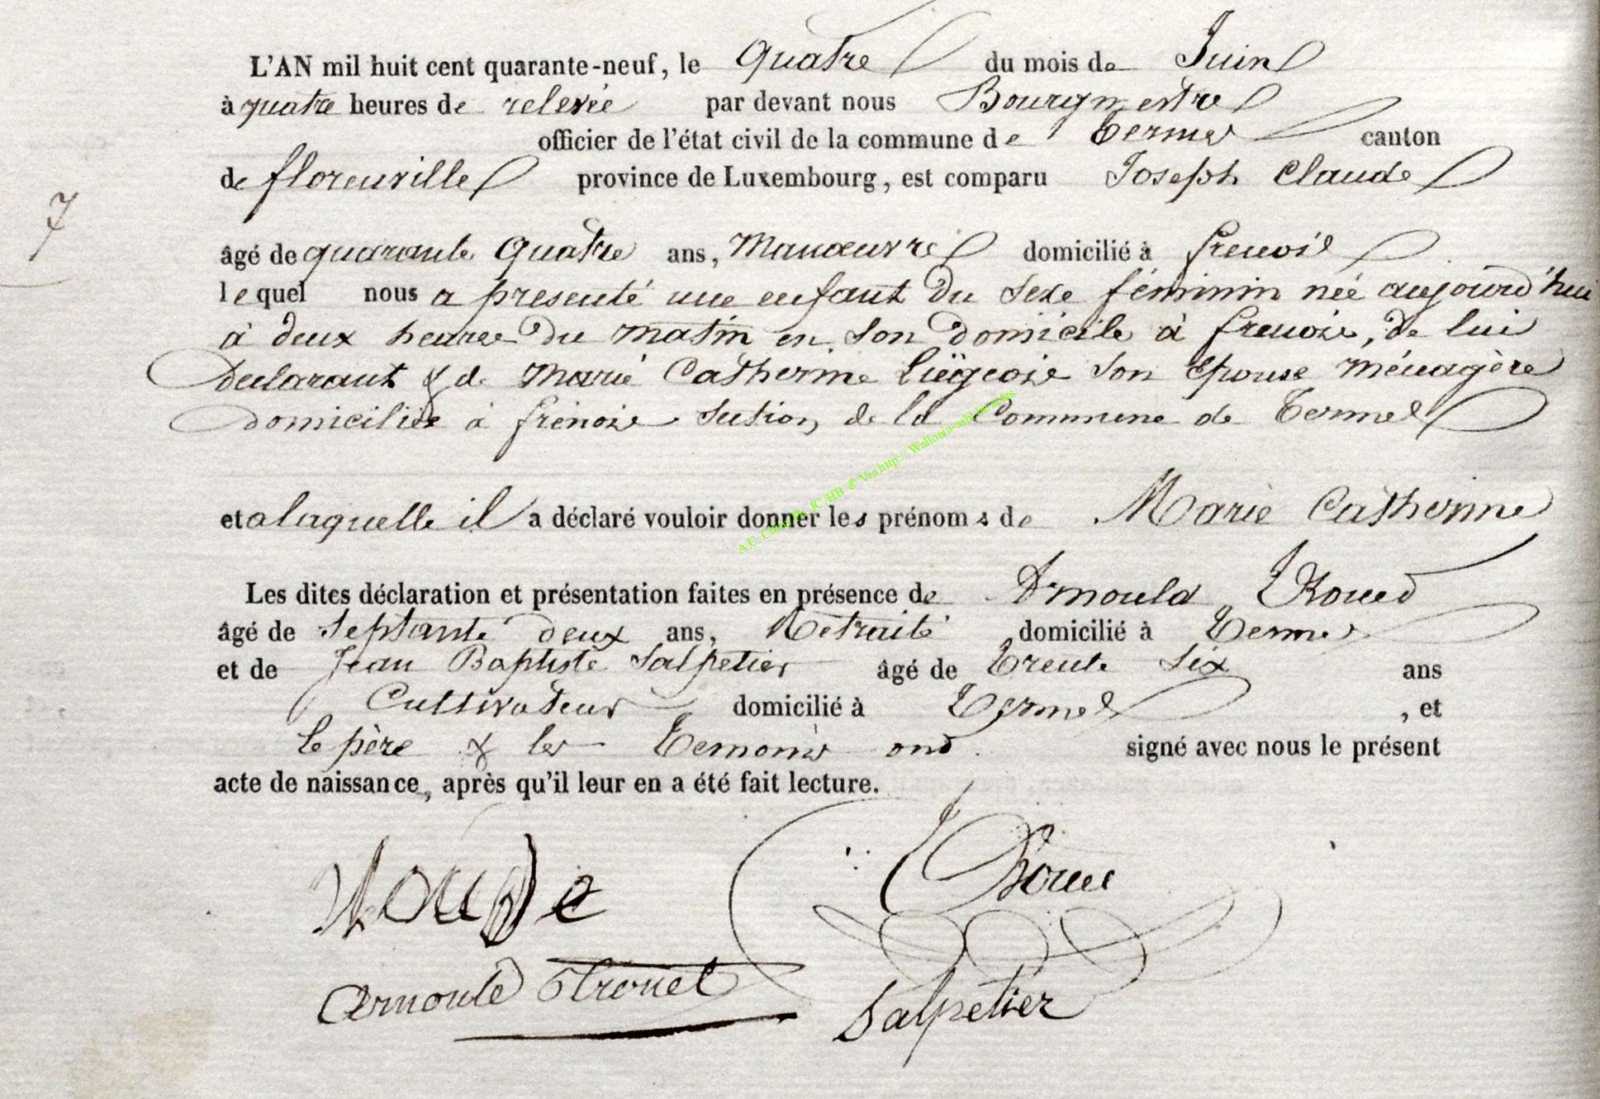 L'AN mil huit cent quarante-neuf, le quatre du mois de Juin
à quatre heures de relevée par devant nous Bourgmestre
officier de l'état civil de la commune de Termes canton
de florenville province de Luxembourg, est comparu Joseph Claude
7
âgé de quarante quatre ans, Manœuvre domicilié à frenois
lequel nous a presenté une enfant du sexe féminin née aujourd'hui
à deux heures du matin en son domicile à frenois, de lui
declarant & de Marie Catherine Liégeois son épouse ménagère
domiciliée à frénois section de la Commune de Termes
et a laquelle il a déclaré vouloir donner les prénoms de Marie Catherine
Les dites déclaration et présentation faites en présence de Arnould
âgé de septante deux ans, Retraité domicilié à Termes
et de Jean Baptiste Salpetier âgé de trente six ans
Cultivateur domicilié à Termes, et
le père & les temoins ont signé avec nous le présent
acte de naissance, après qu'il leur en a été fait lecture.
Salpetier